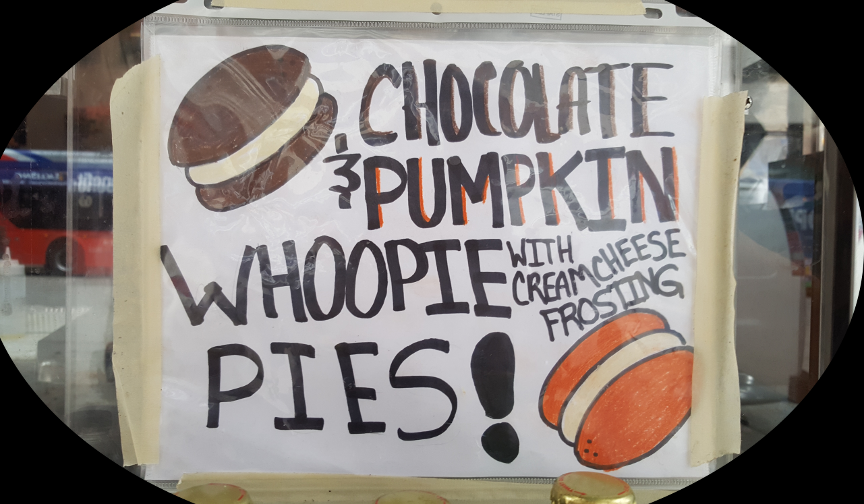 CHOCOLATE
& PUMPKIN
WHOOPIE
WITH
CREAM CHEESE
FROSTING
PIES!